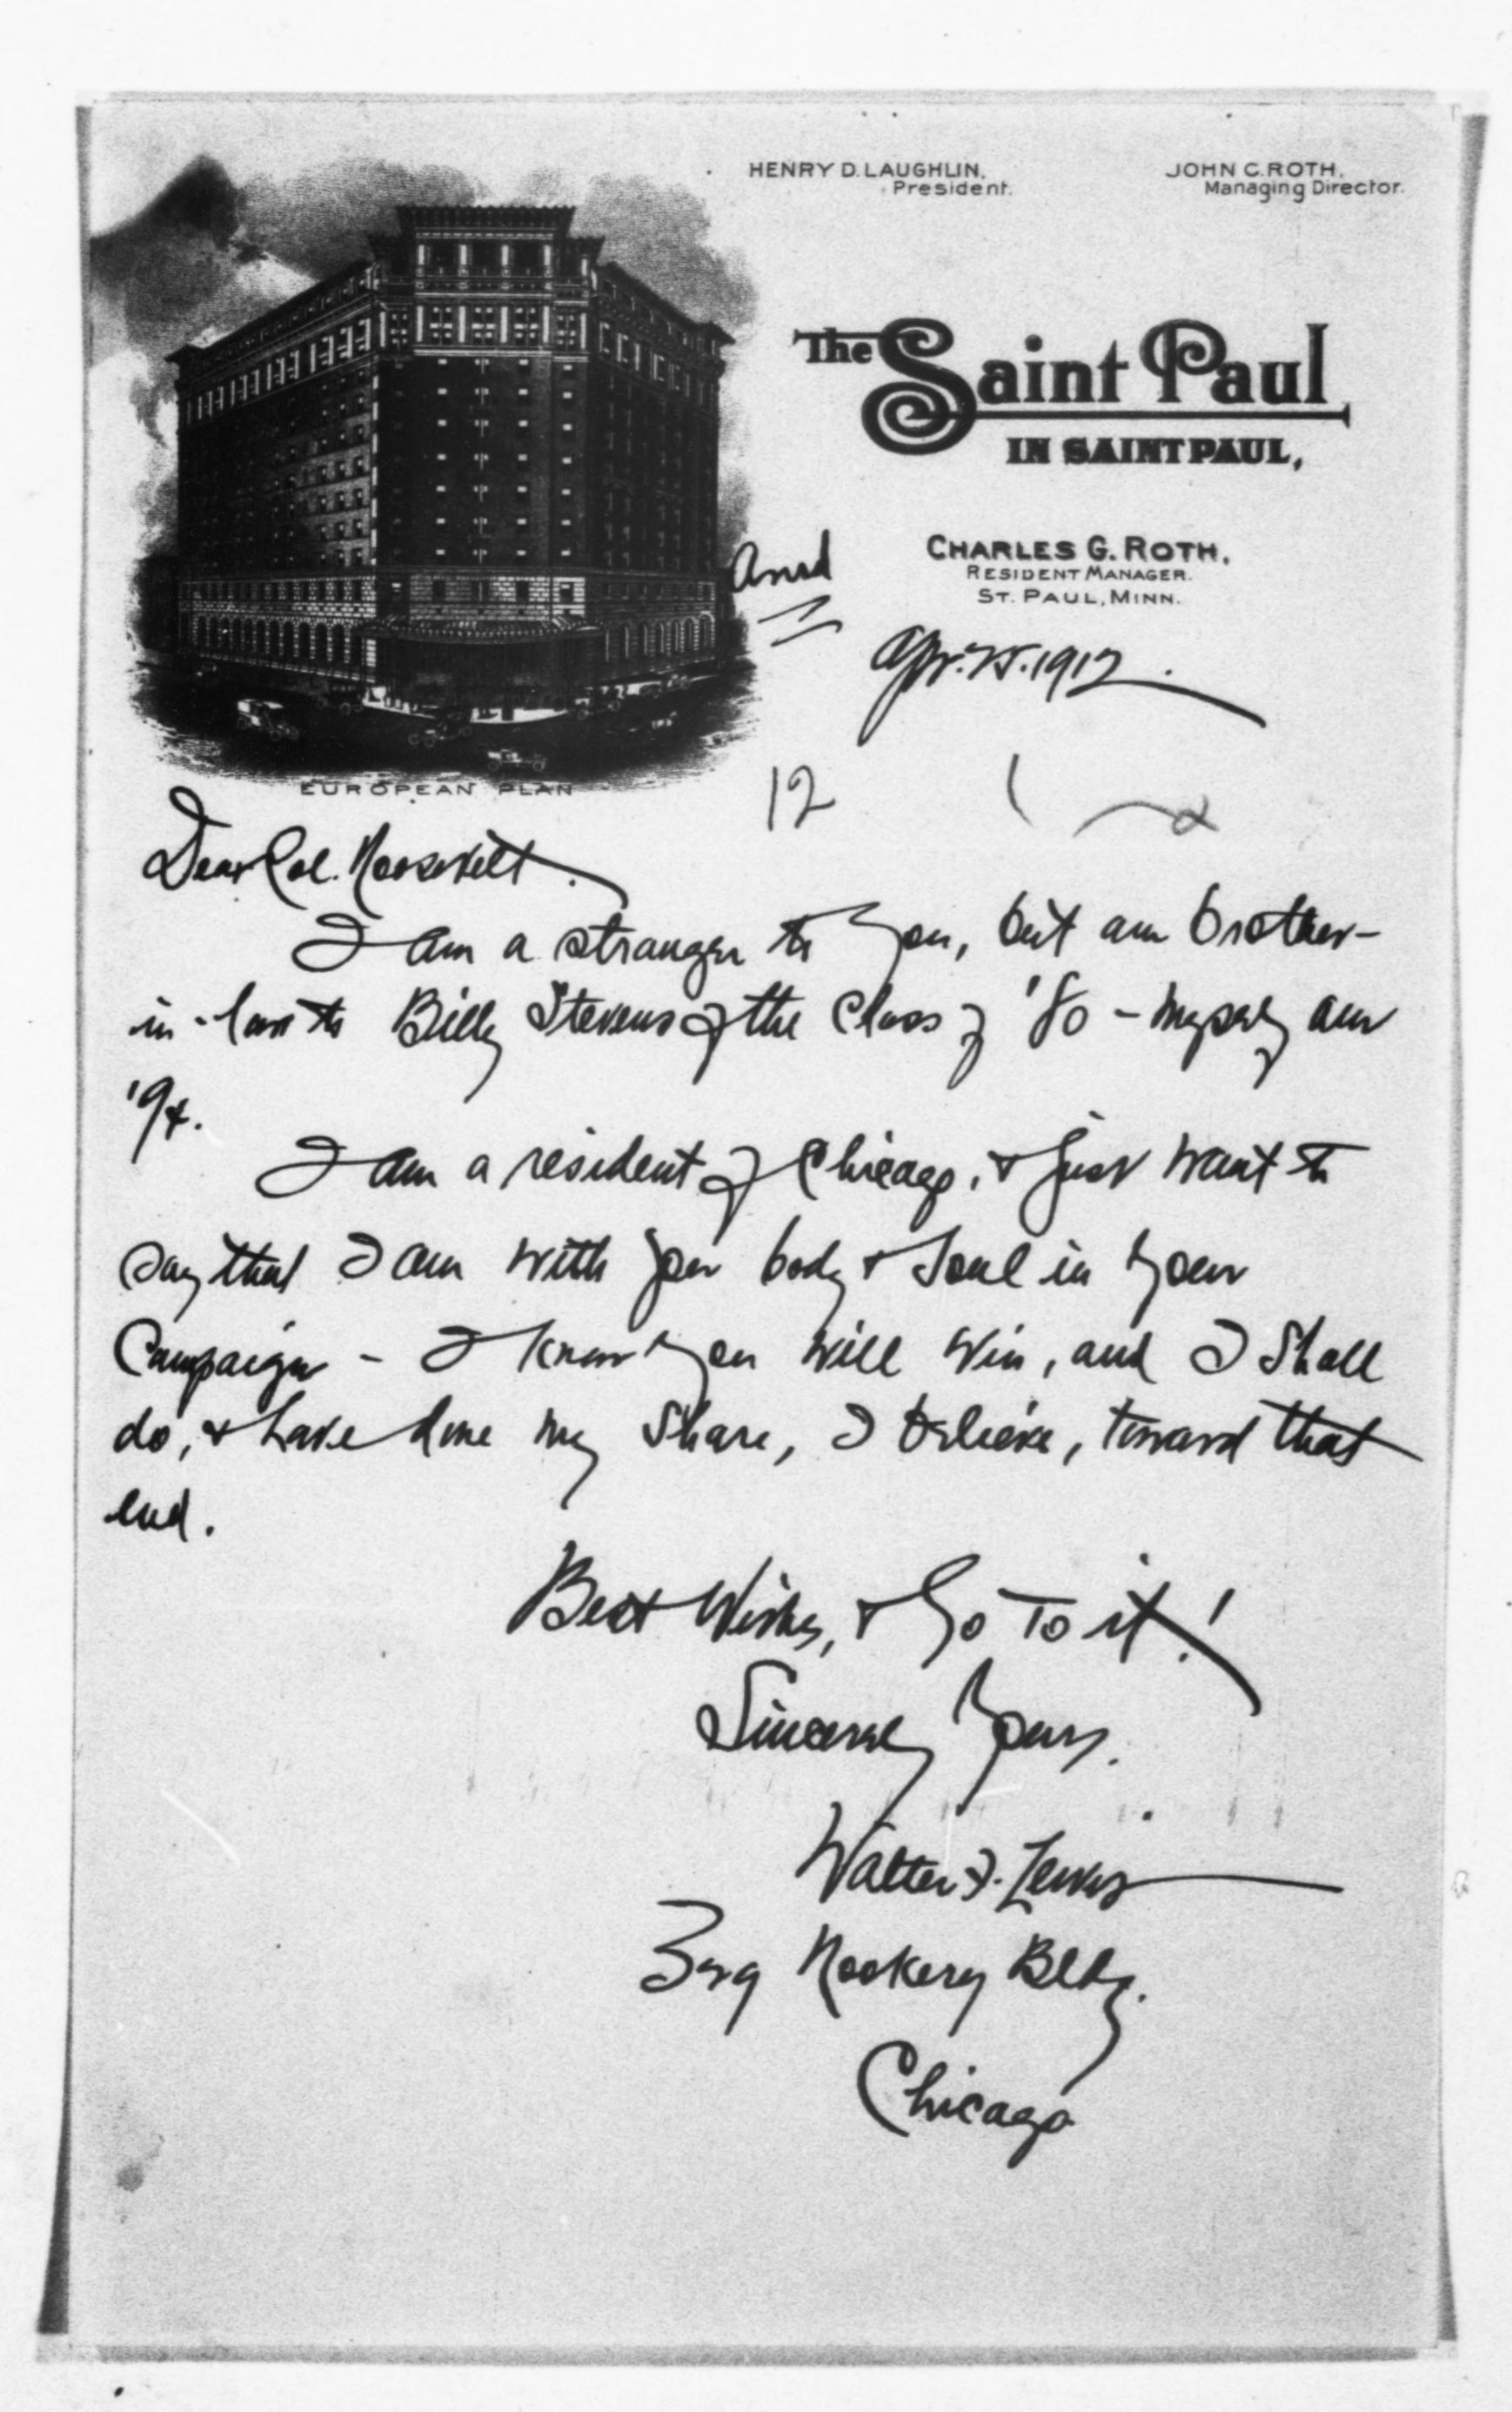 HENRY D. LAUGHLIN,
President.
JOHN C. ROTH,
Managing Director.
The Saint Paul
IN SAINT PAUL,
CHARLES G. ROTH,
RESIDENT MANAGER.
ST. PAUL, MINN.
EUROPEAN PLAN
Ansd
Apr. 25. 1912.
12
Dear Col. Roosevelt.
I am a stranger to you, but am brother-
in-law to Billy Stevens of the Class of '80 - myself am
'94.
I am a resident of Chicago, & just want to
say that I am with you body & soul in your
Campaign - I know you will win, and I shall
do, & have done my share, I believe, toward that
end.
Best Wishes, & Go To it!
Sincerely Yours.
Walter F. Lewis
Rookery Bldg.
Chicago